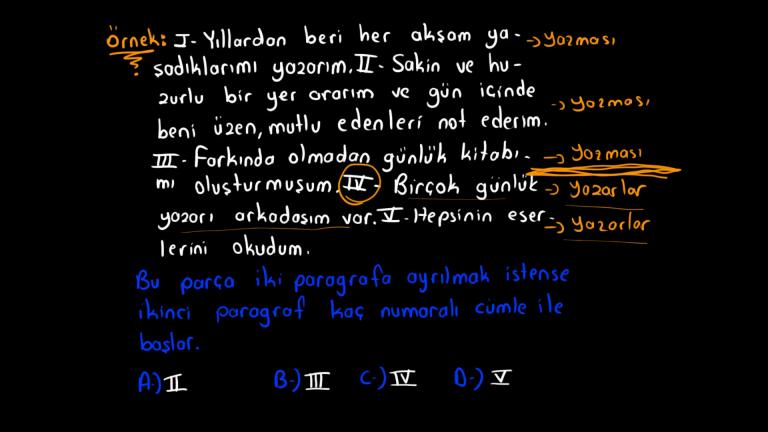 Örnek: I- Yıllardan beri her akşam ya- → yazması
? şadıklarımı yazarım. II- Sakin ve hu-
zurlu bir yer ararım ve gün içinde → yazması
beni üzen, mutlu edenleri not ederim.
III- Farkında olmadan günlük kitabı- → yazması
mı oluşturmuşum. IV- Birçok günlük → yazarlar
yazarı arkadaşım var. V- Hepsinin eser- → yazarlar
lerini okudum.
Bu parça iki paragrafa ayrılmak istense
ikinci paragraf kaç numaralı cümle ile
başlar.
A-) II B-) III C-) IV D-) V